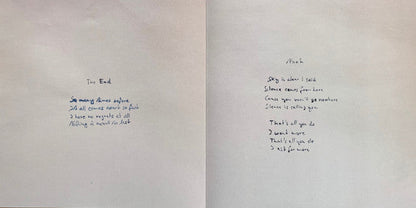 The End
So many times before
It all comes down to
I have no regrets at all
Nothing is meant to last
Sky is clear I said
Silence comes from here
Cause you won't go nowhere
Silence is calling you
That's all you do
I want more
That's all you do
I ask for more